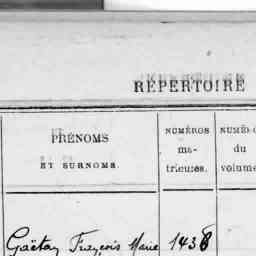 RÉPERTOIRE
PRÉNOMS
ET SURNOMS.
NUMÉROS
ma-
tricules.
NUMÉ
du
volume
Gaëtan François Marie 1438